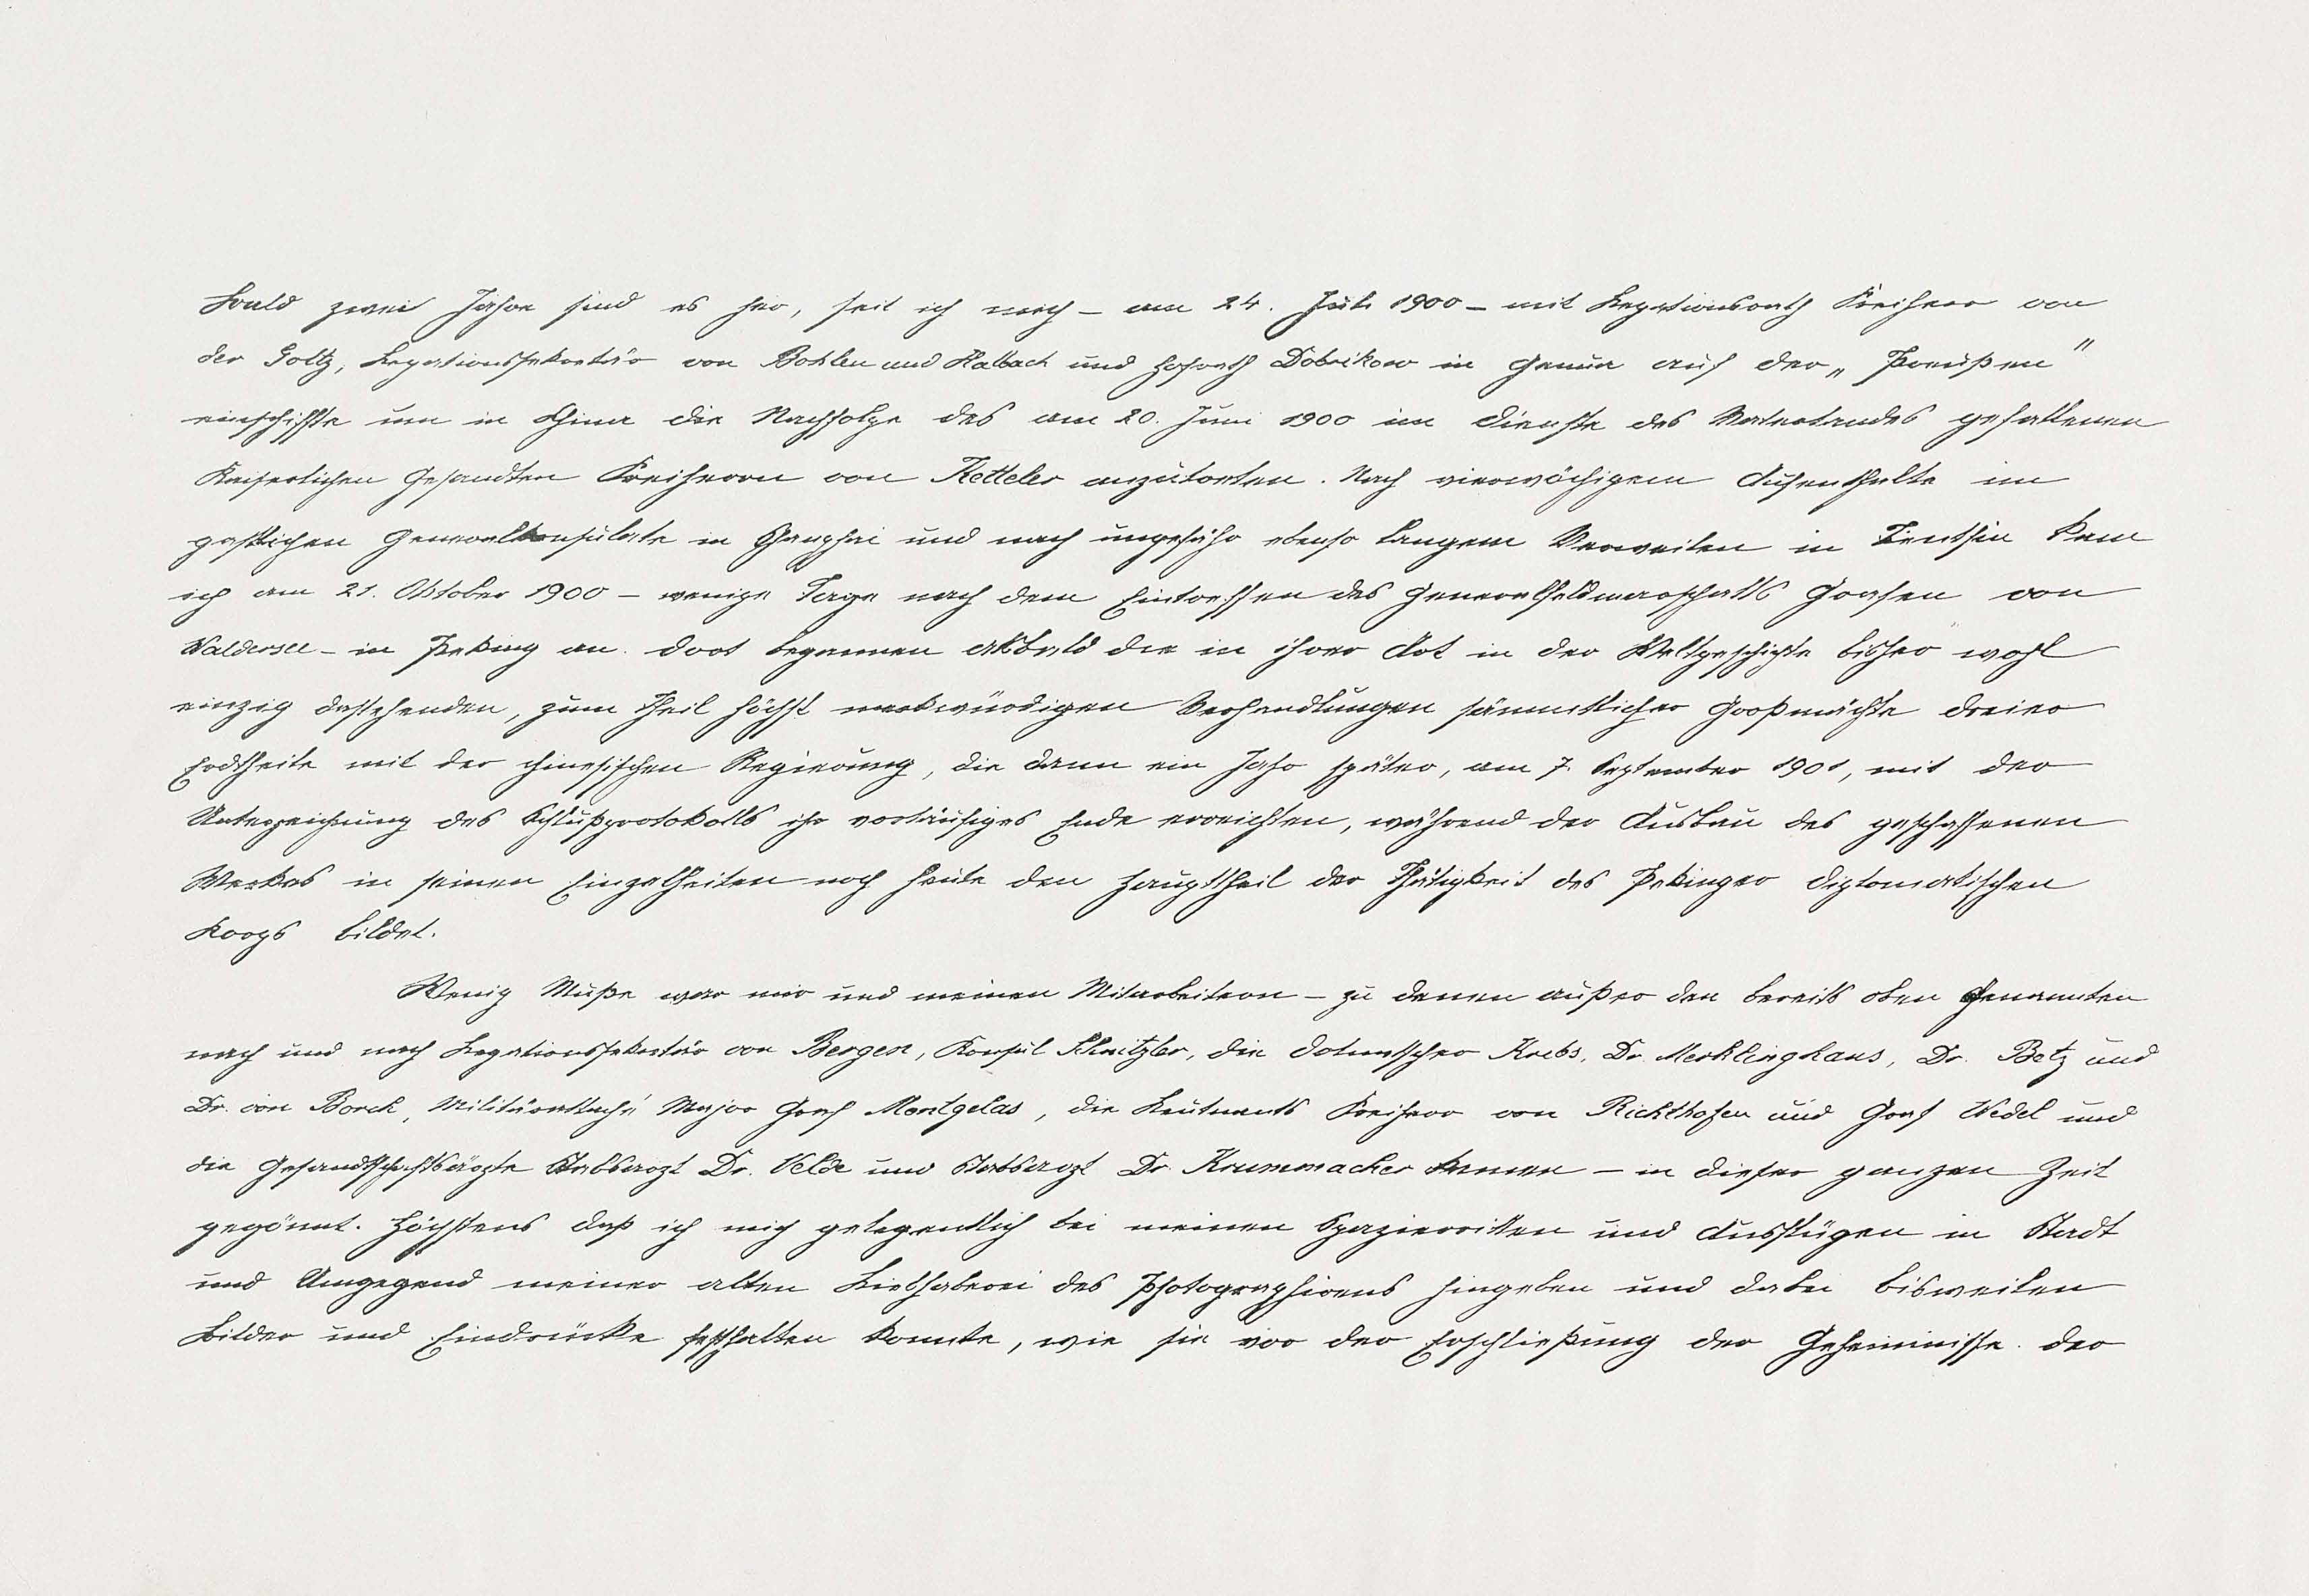 Bald zwei Jahre sind es her, seit ich mich – am 24. Juli 1900 – mit Legationsrath Freiherr von
der Goltz, Legationssekretär von Bohlen und Halbach und Hofrath Dobrikow in Genua auf der „Preußen"
einschiffte um in China die Nachfolge des am 20. Juni 1900 im Dienste des Vaterlandes gefallenen
Kaiserlichen Gesandten Freiherrn von Ketteler anzutreten. Nach vierwöchigem Aufenthalte im
gastlichen Generalkonsulate in Shanghai und nach ungefähr ebenso langem Verweilen in Tientsin kam
ich am 21. Oktober 1900 – wenige Tage nach dem Eintreffen des Generalfeldmarschalls Grafen von
Waldersee – in Peking an. Dort begannen alsbald die in ihrer Art in der Weltgeschichte bisher wohl
einzig dastehenden, zum Theil höchst merkwürdigen Verhandlungen sämmtlicher Großmächte dreier
Erdtheile mit der chinesischen Regierung, die dann ein Jahr später, am 7. September 1901, mit der
Unterzeichnung des Schlußprotokolls ihr vorläufiges Ende erreichten, während der Ausbau des geschaffenen
Werkes in seinen Einzelheiten noch heute den Haupttheil der Thätigkeit des Pekinger diplomatischen
Korps bildet.
Wenig Muße war mir und meinen Mitarbeitern – zu denen außer den bereits oben Genannten
nach und nach Legationssekretär von Bergen, Konsul Schnitzler, die Dolmetscher Krebs, Dr. Merklinghaus, Dr. Betz und
Dr. von Borch, Militärattaché Major Graf Montgelas, die Leutnants Freiherr von Richthofen und Graf Wedel und
die Gesandtschaftsärzte Stabsarzt Dr. Velde und Stabsarzt Dr. Krummacher kamen – in dieser ganzen Zeit
gegönnt. Höchstens daß ich mich gelegentlich bei meinen Spazierritten und Ausflügen in Stadt
und Umgegend meiner alten Liebhaberei des Photographirens hingeben und dabei bisweilen
Bilder und Eindrücke festhalten konnte, wie sie vor der Erschließung der Geheimnisse der